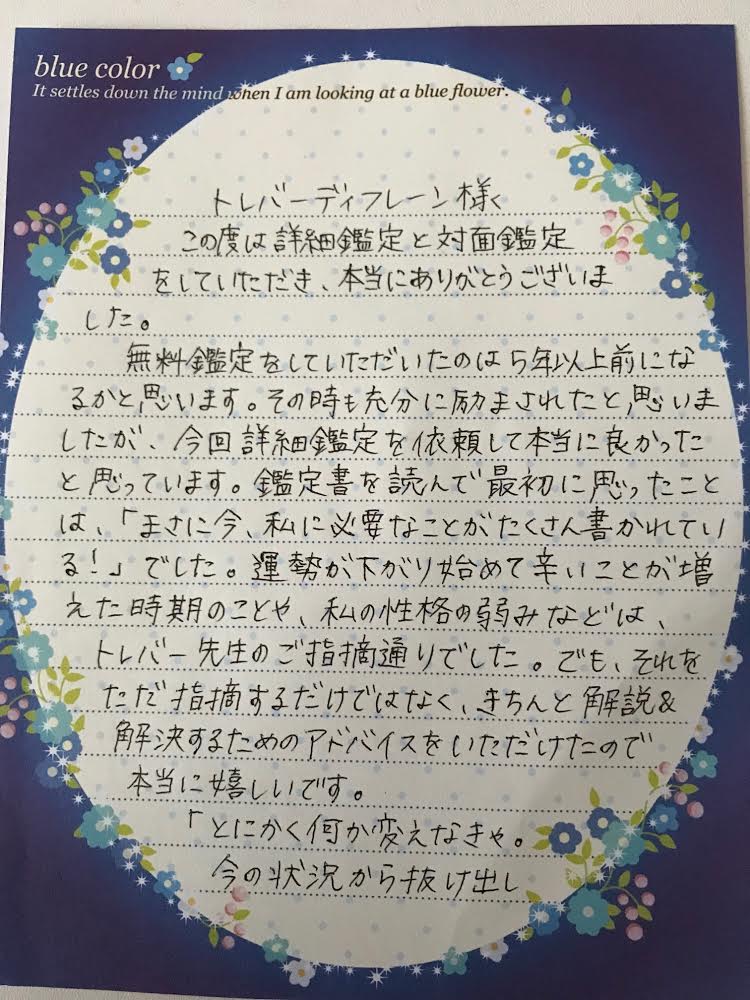 blue color
It settles down the mind when I am looking at a blue flower.
トレバーディフレーン様へ
この度は詳細鑑定と対面鑑定
をしていただき、本当にありがとうございま
した。
無料鑑定をしていただいたのは5年以上前にな
るかと思います。その時も充分に励まされたと思いま
したが、今回詳細鑑定を依頼して本当に良かった
と思っています。鑑定書を読んで最初に思ったこと
は、「まさに今、私に必要なことがたくさん書かれてい
る!」でした。運勢が下がり始めて辛いことが増
えた時期のことや、私の性格の弱みなどは、
トレバー先生のご指摘通りでした。でも、それを
ただ指摘するだけではなく、きちんと解説&
解決するためのアドバイスをいただけたので
本当に嬉しいです。
「とにかく何か変えなきゃ。
今の状況から抜け出し